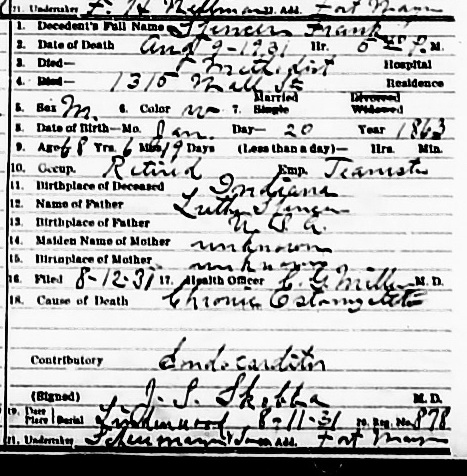 21. Undertaker F. H. Add. Fort Wayne
1. Decedent's Full Name Spencer Frank
2. Date of Death Aug 9-1931 Hr. 5 P. M.
3. Died— Methodist Hospital
4. Died— 1315 Wall St Residence
5. Sex M. 6. Color w 7. Married Single Divorced Widowed
8. Date of Birth—Mo. Jan. Day— 20 Year 1863
9. Age 68 Yrs. 6 Mos 19 Days (Less than a day)— Hrs. Min.
10. Occup. Retired Emp. Teamster
11. Birthplace of Deceased Indiana
12. Name of Father Luth Spencer
13. Birthplace of Father U. S. A.
14. Maiden Name of Mother unknown
15. Birthplace of Mother unknown
16. Filed 8-12-31 17. Health Officer Miller M. D.
18. Cause of Death Chronic
Contributory Endocarditis
(Signed) J. S. M. D.
19. Date Place Burial Lindenwood 8-11-31 20. Reg. No. 878
21. Undertaker & Sons Add. Fort Wayne